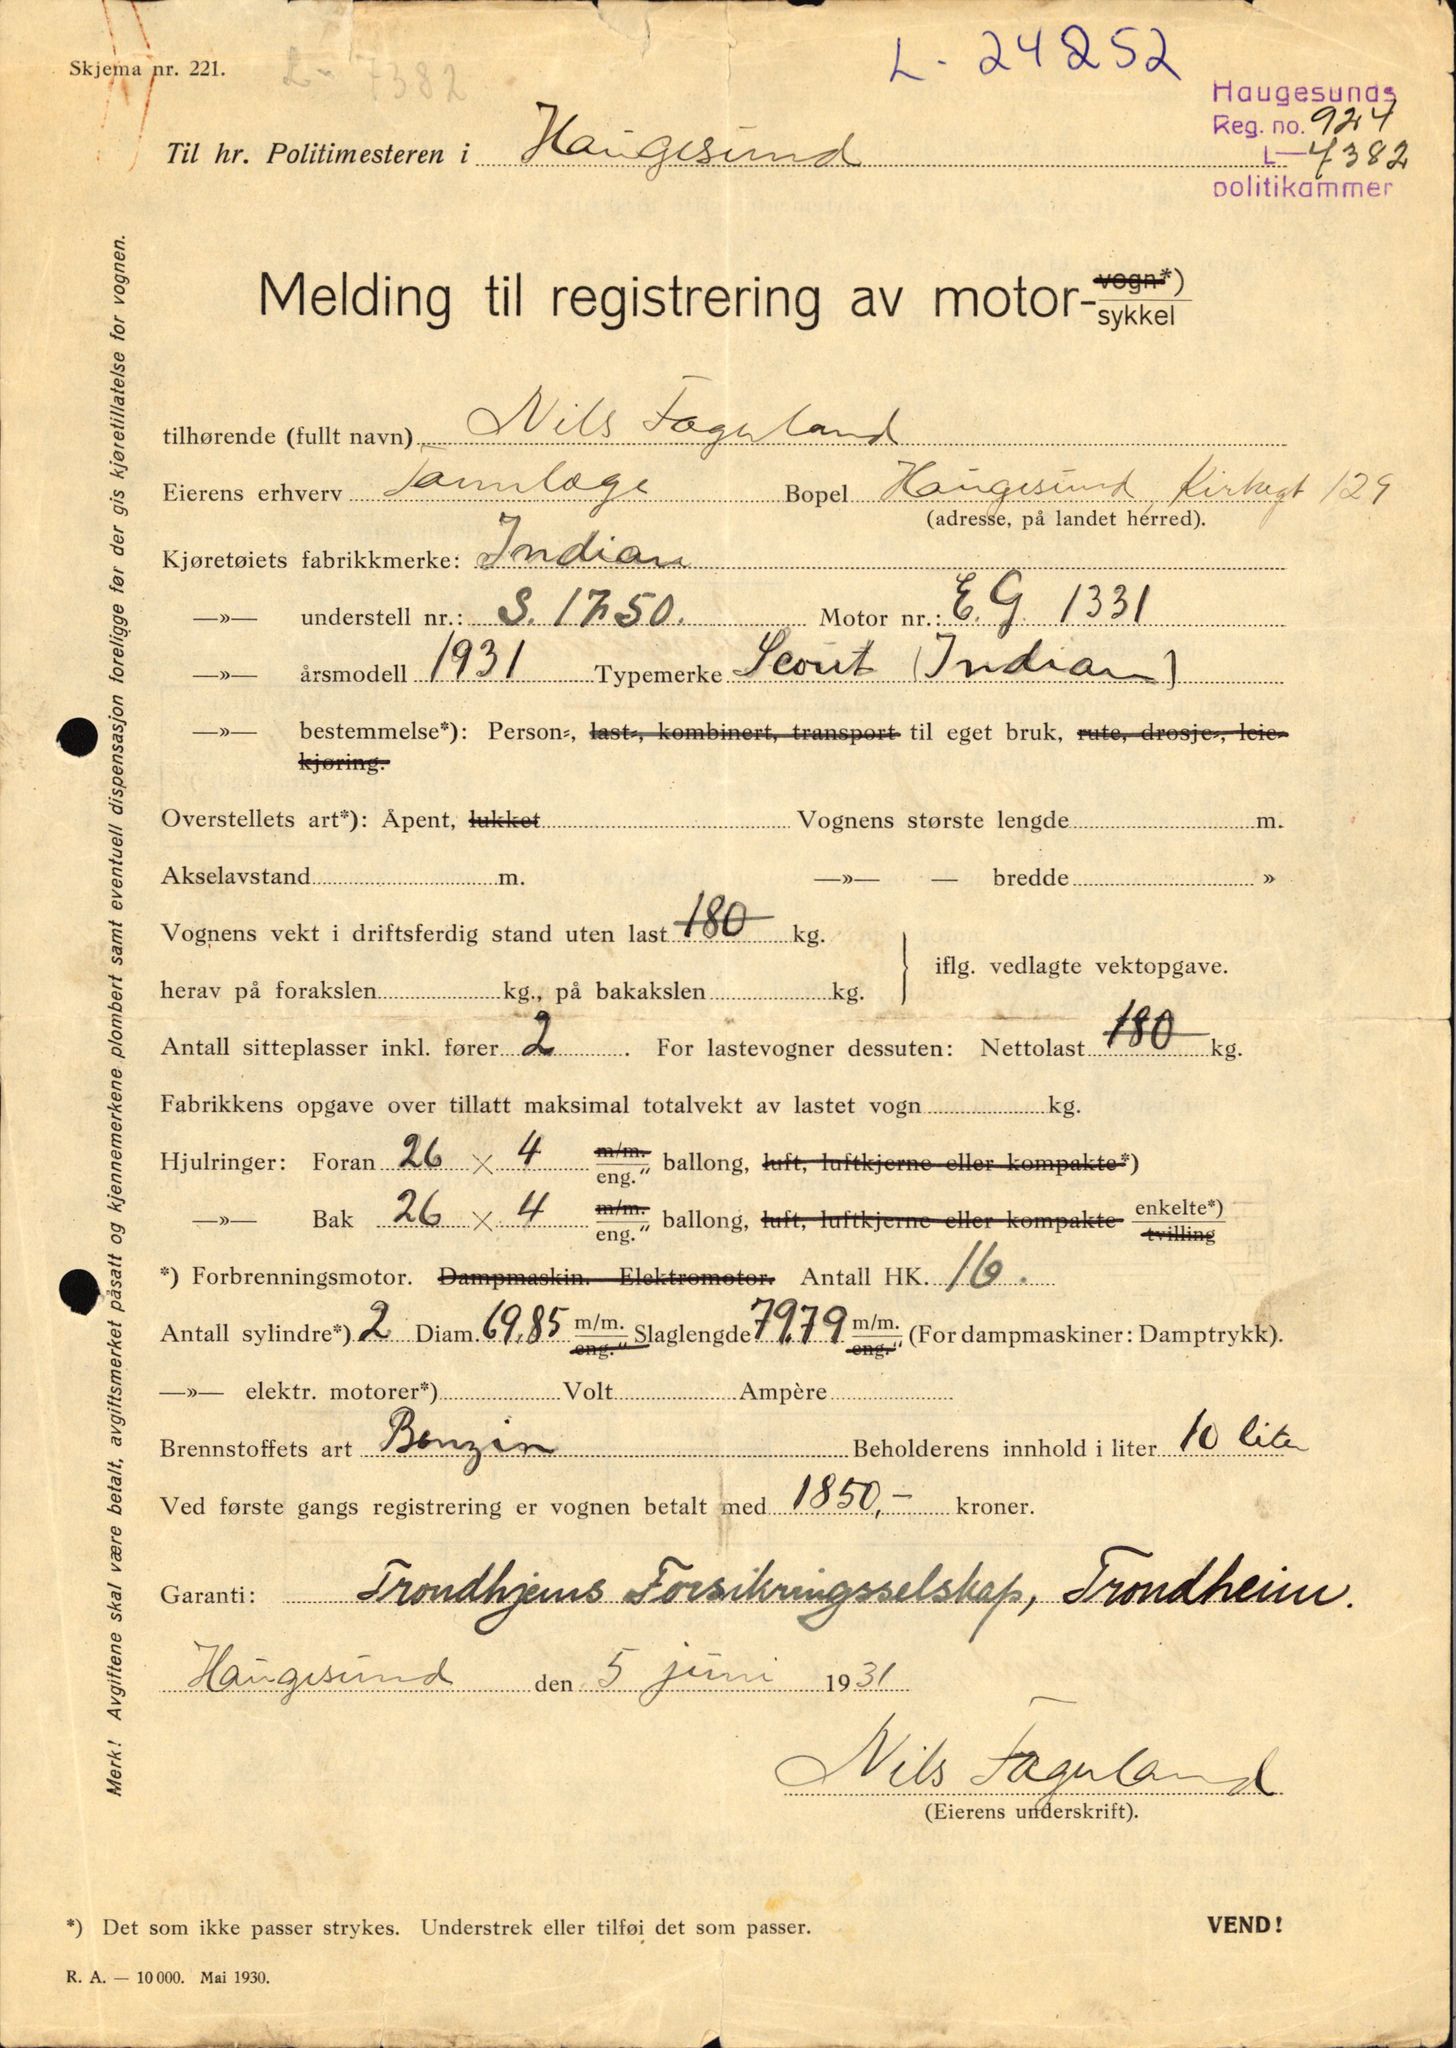 Skjema nr. 221.
L - 7382
L - 24252
Haugesunds
Reg. no. 924
L— 7382
politikammer
Til hr. Politimesteren i Haugesund
Melding til registrering av motor-vogn*)
sykkel
tilhørende (fullt navn) Nils Fagerland
Eierens erhverv Tannlæge Bopel Haugesund, Kirkegt 129
(adresse, på landet herred).
Kjøretøiets fabrikkmerke: Indian
—»— understell nr.: S. 1750. Motor nr.: E.G. 1331
—»— årsmodell 1931 Typemerke Scout (Indian)
—»— bestemmelse*): Person-, last-, kombinert, transport til eget bruk, rute, drosje-, leie-
kjøring.
Overstellets art*): Åpent, lukket Vognens største lengde m.
Akselavstand m. —»— — bredde »
Vognens vekt i driftsferdig stand uten last 180 kg.
iflg. vedlagte vektopgave.
herav på forakslen kg., på bakakslen kg.
Antall sitteplasser inkl. fører 2. For lastevogner dessuten: Nettolast 180 kg.
Fabrikkens opgave over tillatt maksimal totalvekt av lastet vogn kg.
Hjulringer: Foran 26 × 4 m/m. eng." ballong, luft, luftkjerne eller kompakte*)
—»— Bak 26 × 4 m/m. eng." ballong, luft, luftkjerne eller kompakte enkelte*) tvilling
*) Forbrenningsmotor. Dampmaskin. Elektromotor. Antall HK. 16.
Antall sylindre*) 2 Diam. 69,85 m/m. eng." Slaglengde 79,79 m/m. eng." (For dampmaskiner: Damptrykk).
—»— elektr. motorer*) Volt Ampère
Brennstoffets art Benzin Beholderens innhold i liter 10 liter
Ved første gangs registrering er vognen betalt med 1850,- kroner.
Garanti: Trondhjems Forsikringsselskap, Trondheim.
Haugesund den 5 juni 1931
Nils Fagerland
(Eierens underskrift).
*) Det som ikke passer strykes. Understrek eller tilføi det som passer.
VEND!
R. A. — 10 000. Mai 1930.
Merk! Avgiftene skal være betalt, avgiftsmerket påsatt og kjennemerkene plombert samt eventuell dispensasjon foreligge før der gis kjøretillatelse for vognen.